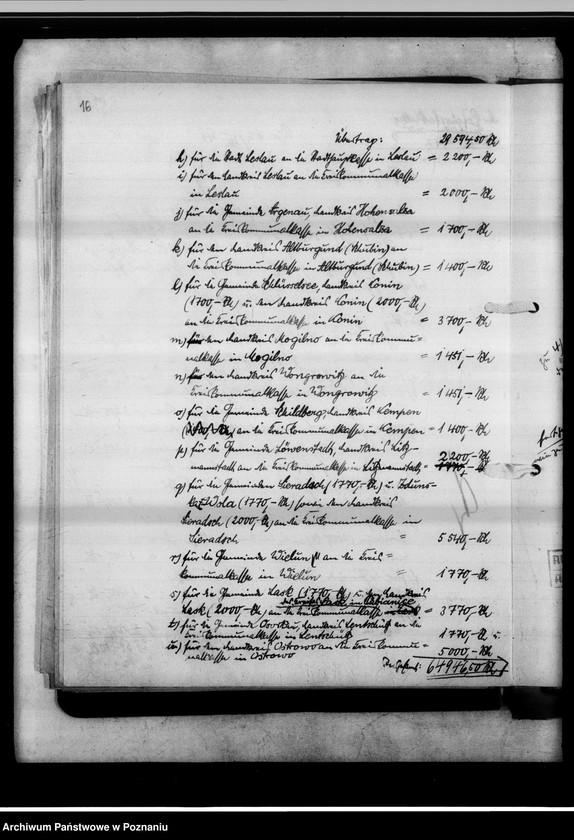 16
Übertrag: 29 594,50 RM
h) für die Stadt Leslau an die Stadthauptkasse in Leslau = 2 200,- RM
i) für den Landkreis Leslau an die Kreiskommunalkasse
in Leslau = 2 000,- RM
j) für die Gemeinde Argenau, Landkreis Hohensalza
an die Kreiskommunalkasse in Hohensalza = 1 700,- RM
k) für den Landkreis Altburgund (Schubin) an
die Kreiskommunalkasse in Altburgund (Schubin) = 1 400,- RM
l) für die Gemeinde Schlüsselsee, Landkreis Konin
(1700,- RM) u. den Landkreis Konin (2000,- RM)
an die Kreiskommunalkasse in Konin = 3 700,- RM
m) für den Landkreis Mogilno an die Kreiskommu-
nalkasse in Mogilno = 1 451,- RM
n) für den Landkreis Wongrowitz an die
Kreiskommunalkasse in Wongrowitz = 1 451,- RM
o) für die Gemeinde Schildberg, Landkreis Kempen
an die Kreiskommunalkasse in Kempen = 1 400,- RM
p) für die Gemeinde Löwenstadt, Landkreis Litz-
mannstadt an die Kreiskommunalkasse in Litzmannstadt = 2 200,- RM
q) für die Gemeinden Sieradsch (1770,- RM) u. Zduns-
ka-Wola (1770,- RM) sowie den Landkreis
Sieradsch (2000,- RM) an die Kreiskommunalkasse in
Sieradsch = 5 540,- RM
r) für die Gemeinde Wielun an die Kreis-
kommunalkasse in Wielun = 1 770,- RM
s) für die Gemeinde Lask (1770,- RM) u. den Landkreis
des Kreises Lask in Pabianice
Lask (2000,- RM) an die Kreiskommunalkasse = 3 770,- RM
t) für die Gemeinde Osorkau, Landkreis Lentschütz an die
Kreiskommunalkasse in Lentschütz 1 770,- RM u.
u) für den Landkreis Ostrowo an die Kreiskommu-
nalkasse in Ostrowo = 5 000,- RM
64 946,50 RM
Archiwum Państwowe w Poznaniu